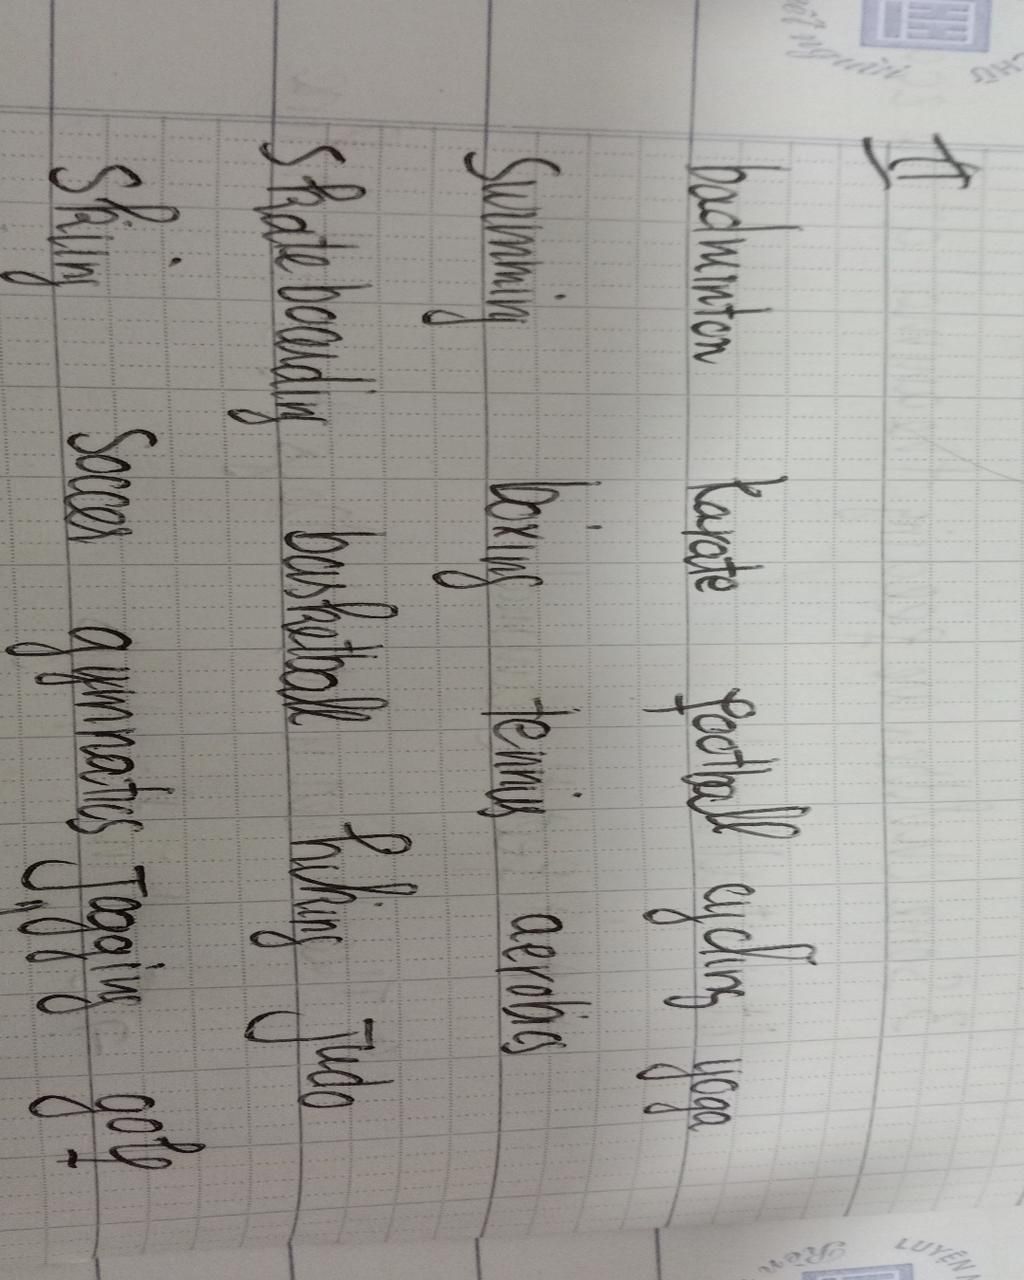 II
badminton karate football cycling yoga
Swimming boxing tennis aerobics
Skateboarding basketball hiking Judo
Skiing Soccer gymnatics Jogging golf
CHỮ
nét người
LUYỆN
Rèn